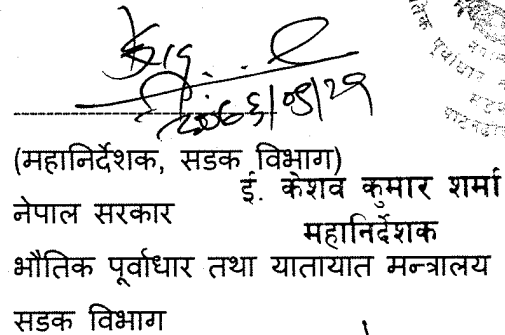 (महानिर्देशक, सडक विभाग)
ई. केशव कुमार शर्मा
नेपाल सरकार
महानिर्देशक
भौतिक पूर्वाधार तथा यातायात मन्त्रालय
सडक विभाग